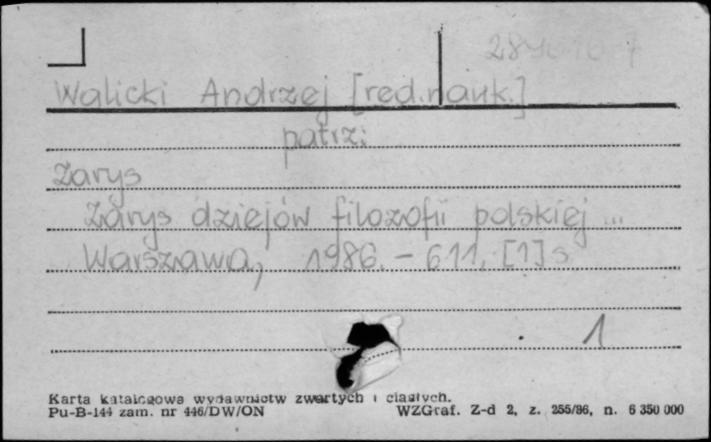 Walicki Andrzej [red.nauk.]
patrz:
Zarys
Zarys dziejów filozofii polskiej ...
Warszawa, 1986. – 611, [1] s
1
Karta katalogowa wydawnictw zwartych i ciągłych.
Pu-B-144 zam. nr 446/DW/ON WZGraf. Z-d 2, z. 255/86, n. 6 350 000